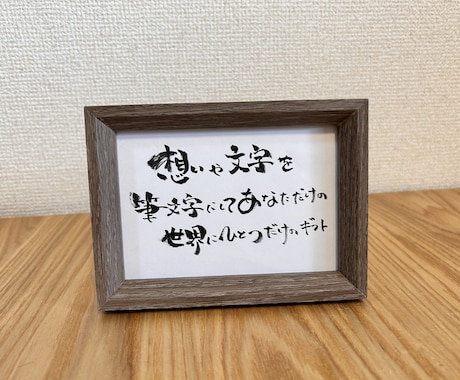 想いや文字を
筆文字にしてあなただけの
世界にひとつだけのギフト